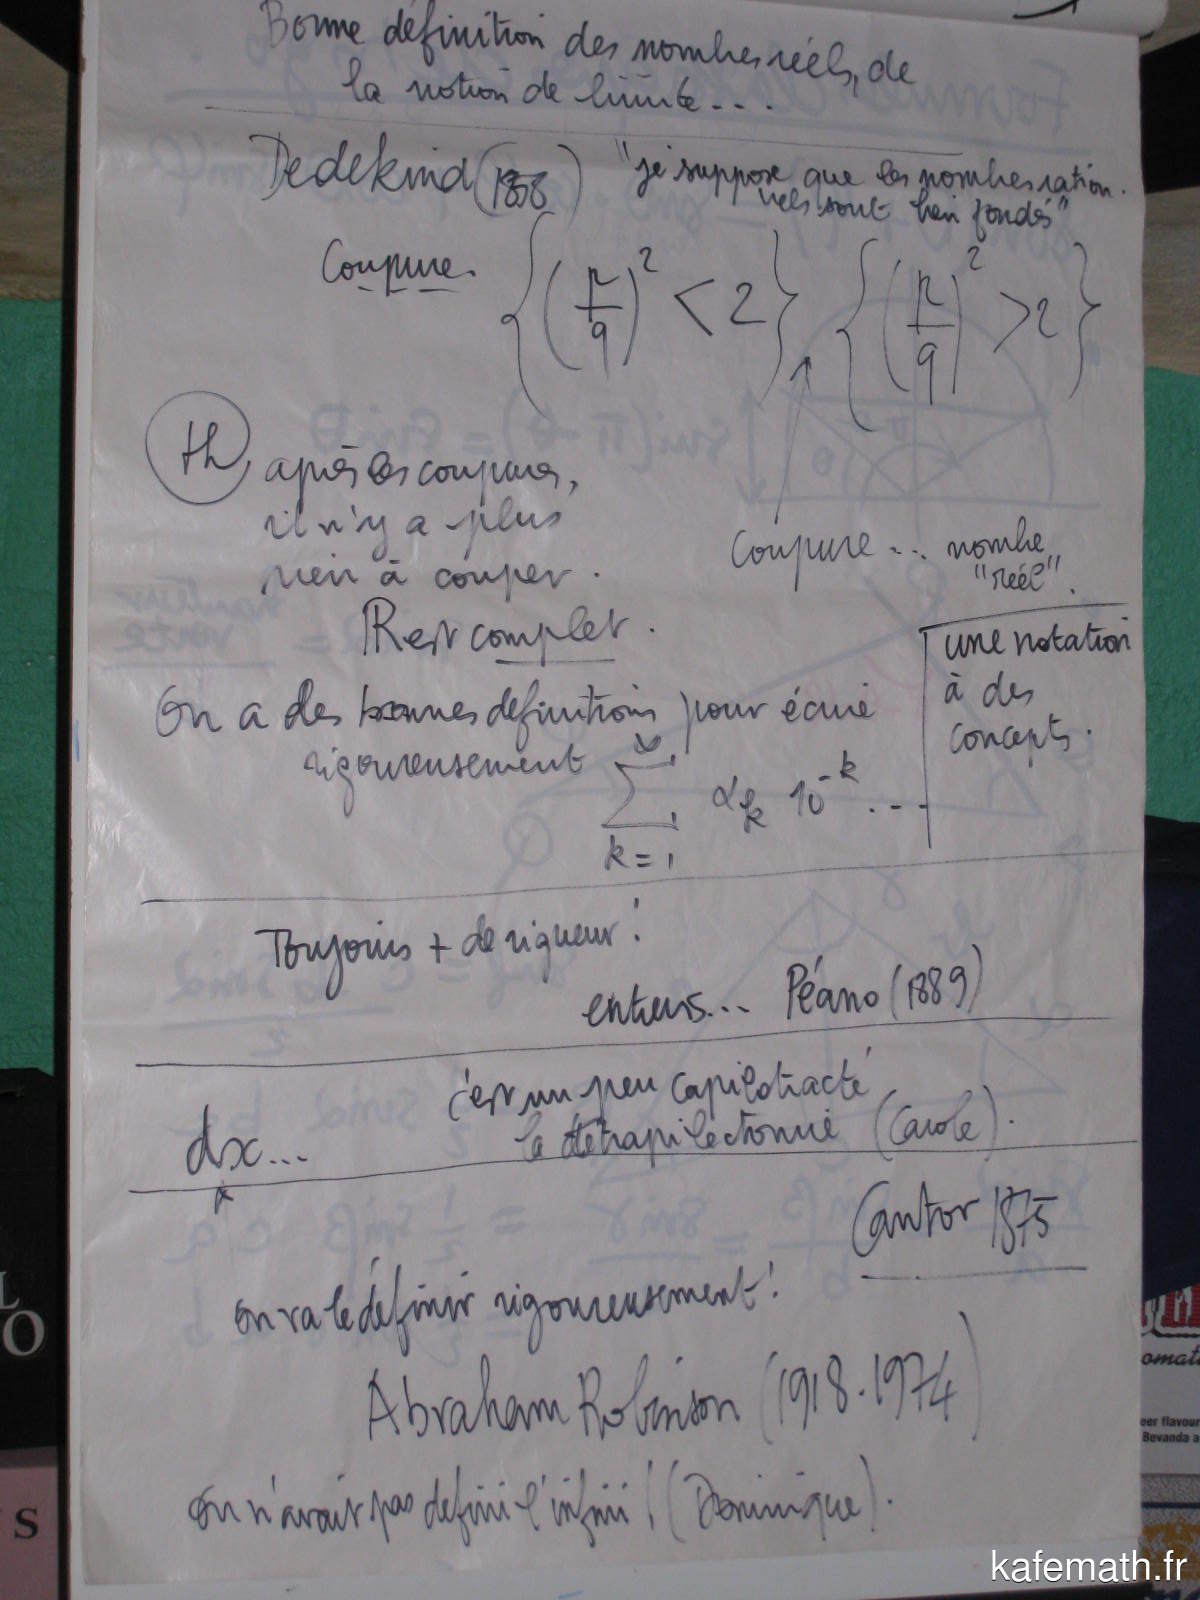 Bonne définition des nombres réels, de
la notion de limite...
Dedekind (1858) "je suppose que les nombres ration.
nels sont bien fondés"
Coupure. { (p/q)² < 2 } { (p/q)² > 2 }
th après les coupures,
il n'y a plus
rien à couper.
Coupure... nombre
"réel".
R est complet.
une notation
à des
concepts.
On a des bonnes définitions pour écrire
rigoureusement ∑ αk 10^-k ...
k=1
Toujours + de rigueur!
entiers... Péano (1889)
c'est un peu capilotracté
dx... la tétrapilectomie (Carole).
Cantor 1875
on va le définir rigoureusement!
Abraham Robinson (1918-1974)
on n'avait pas défini l'infini! (Dominique).
L
O
S
omati
eer flavour
Bevanda a
kafemath.fr